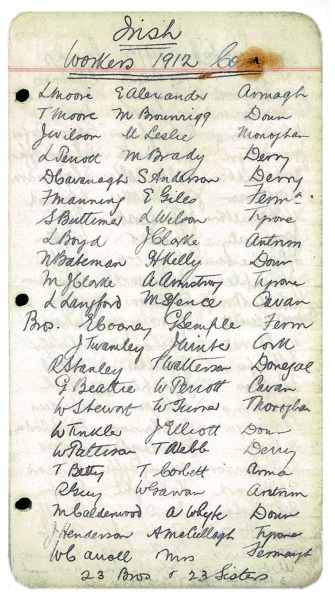 Irish
Workers 1912 Co
L Moore E Alexander Armagh
T Moore M Brownrigg Down
J Wilson M Leslie Monoghan
L Perrott M Brady Derry
D Cavanagh S Anderson Derry
F Manning E Giles Ferm
S Buttimer L Wilson Tyrone
L Boyd J Clarke Antrim
N Bateman H Kelly Down
M J Clarke A Armstrong Tyrone
L Langford M Spence Cavan
Bros. E Cooney G Semple Ferm
J Twamley J Hunter Cork
R Stanley P Watterson Donegal
G Beattie W Perrott Cavan
W Stewart W Turner
W Tinkler J Elliott Down
W Pattison T Webb Derry
T Betty T Corbett Arma
R Guy W Gawan Antrim
M Calderwood A Whyte Down
J Henderson A McCullagh Tyrone
W Carroll Mrs Fermangh
23 Bros & 23 Sisters